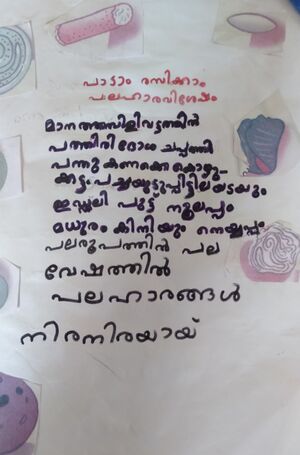 പാടാം രസിക്കാം
പലഹാരവിശേഷം
മാനത്തമ്പിളിവട്ടത്തിൽ
പത്തിരി ദോശ ചപ്പാത്തി
പന്തു കണക്കെ കൊഴു-
ക്കട്ട
ഇഡ്ഡലി പുട്ട് നൂലപ്പം
മധുരം കിനിയും നെയ്യപ്പം
പലരൂപത്തിൽ പല
വേഷത്തിൽ
പലഹാരങ്ങൾ
നിരനിരയായ്